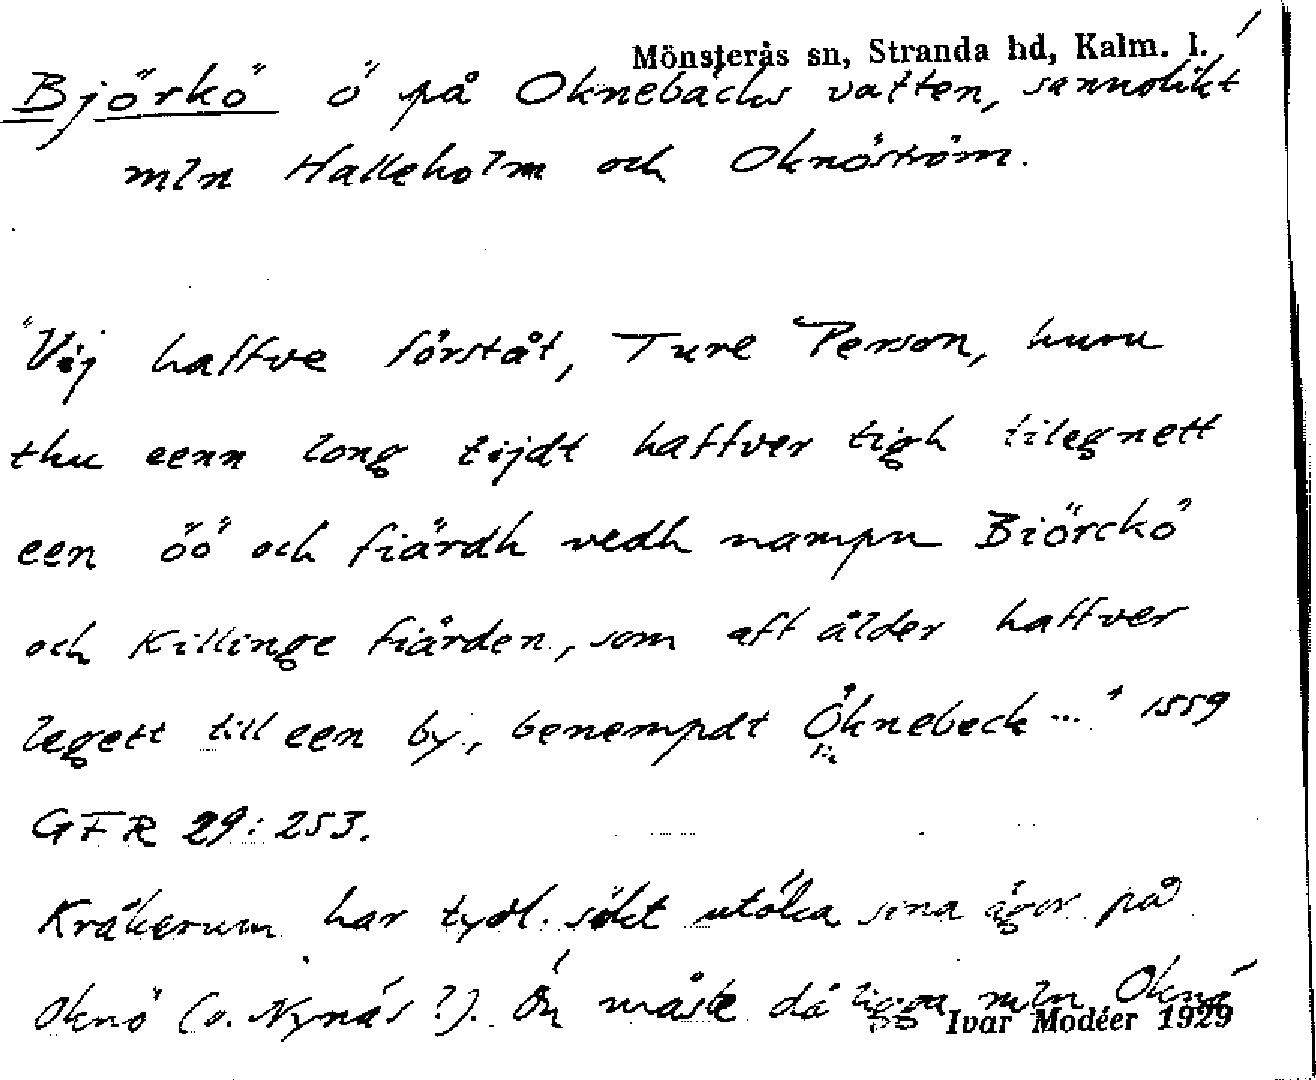 Mönsterås sn, Stranda hd, Kalm. l.
Björkö ö på Oknebäcks vatten, sannolikt
mln Halleholm och Oknöström.
"Vij haffve förståt, Ture Person, huru
thu eenn long tijdt haffver tigh tilegnett
een öö och fiärdh vedh nampn Biörckö
och Killinge fiärden, som aff ålder haffver
legett till een by, benempdt Öknebeck ..." 1559
GFR 29:253.
Kråkerum har tydl. sökt utöka sina ägor på
Oknö (v. Nynäs?). Ön måste då ligga mln Oknö
Ivar Modéer 1929